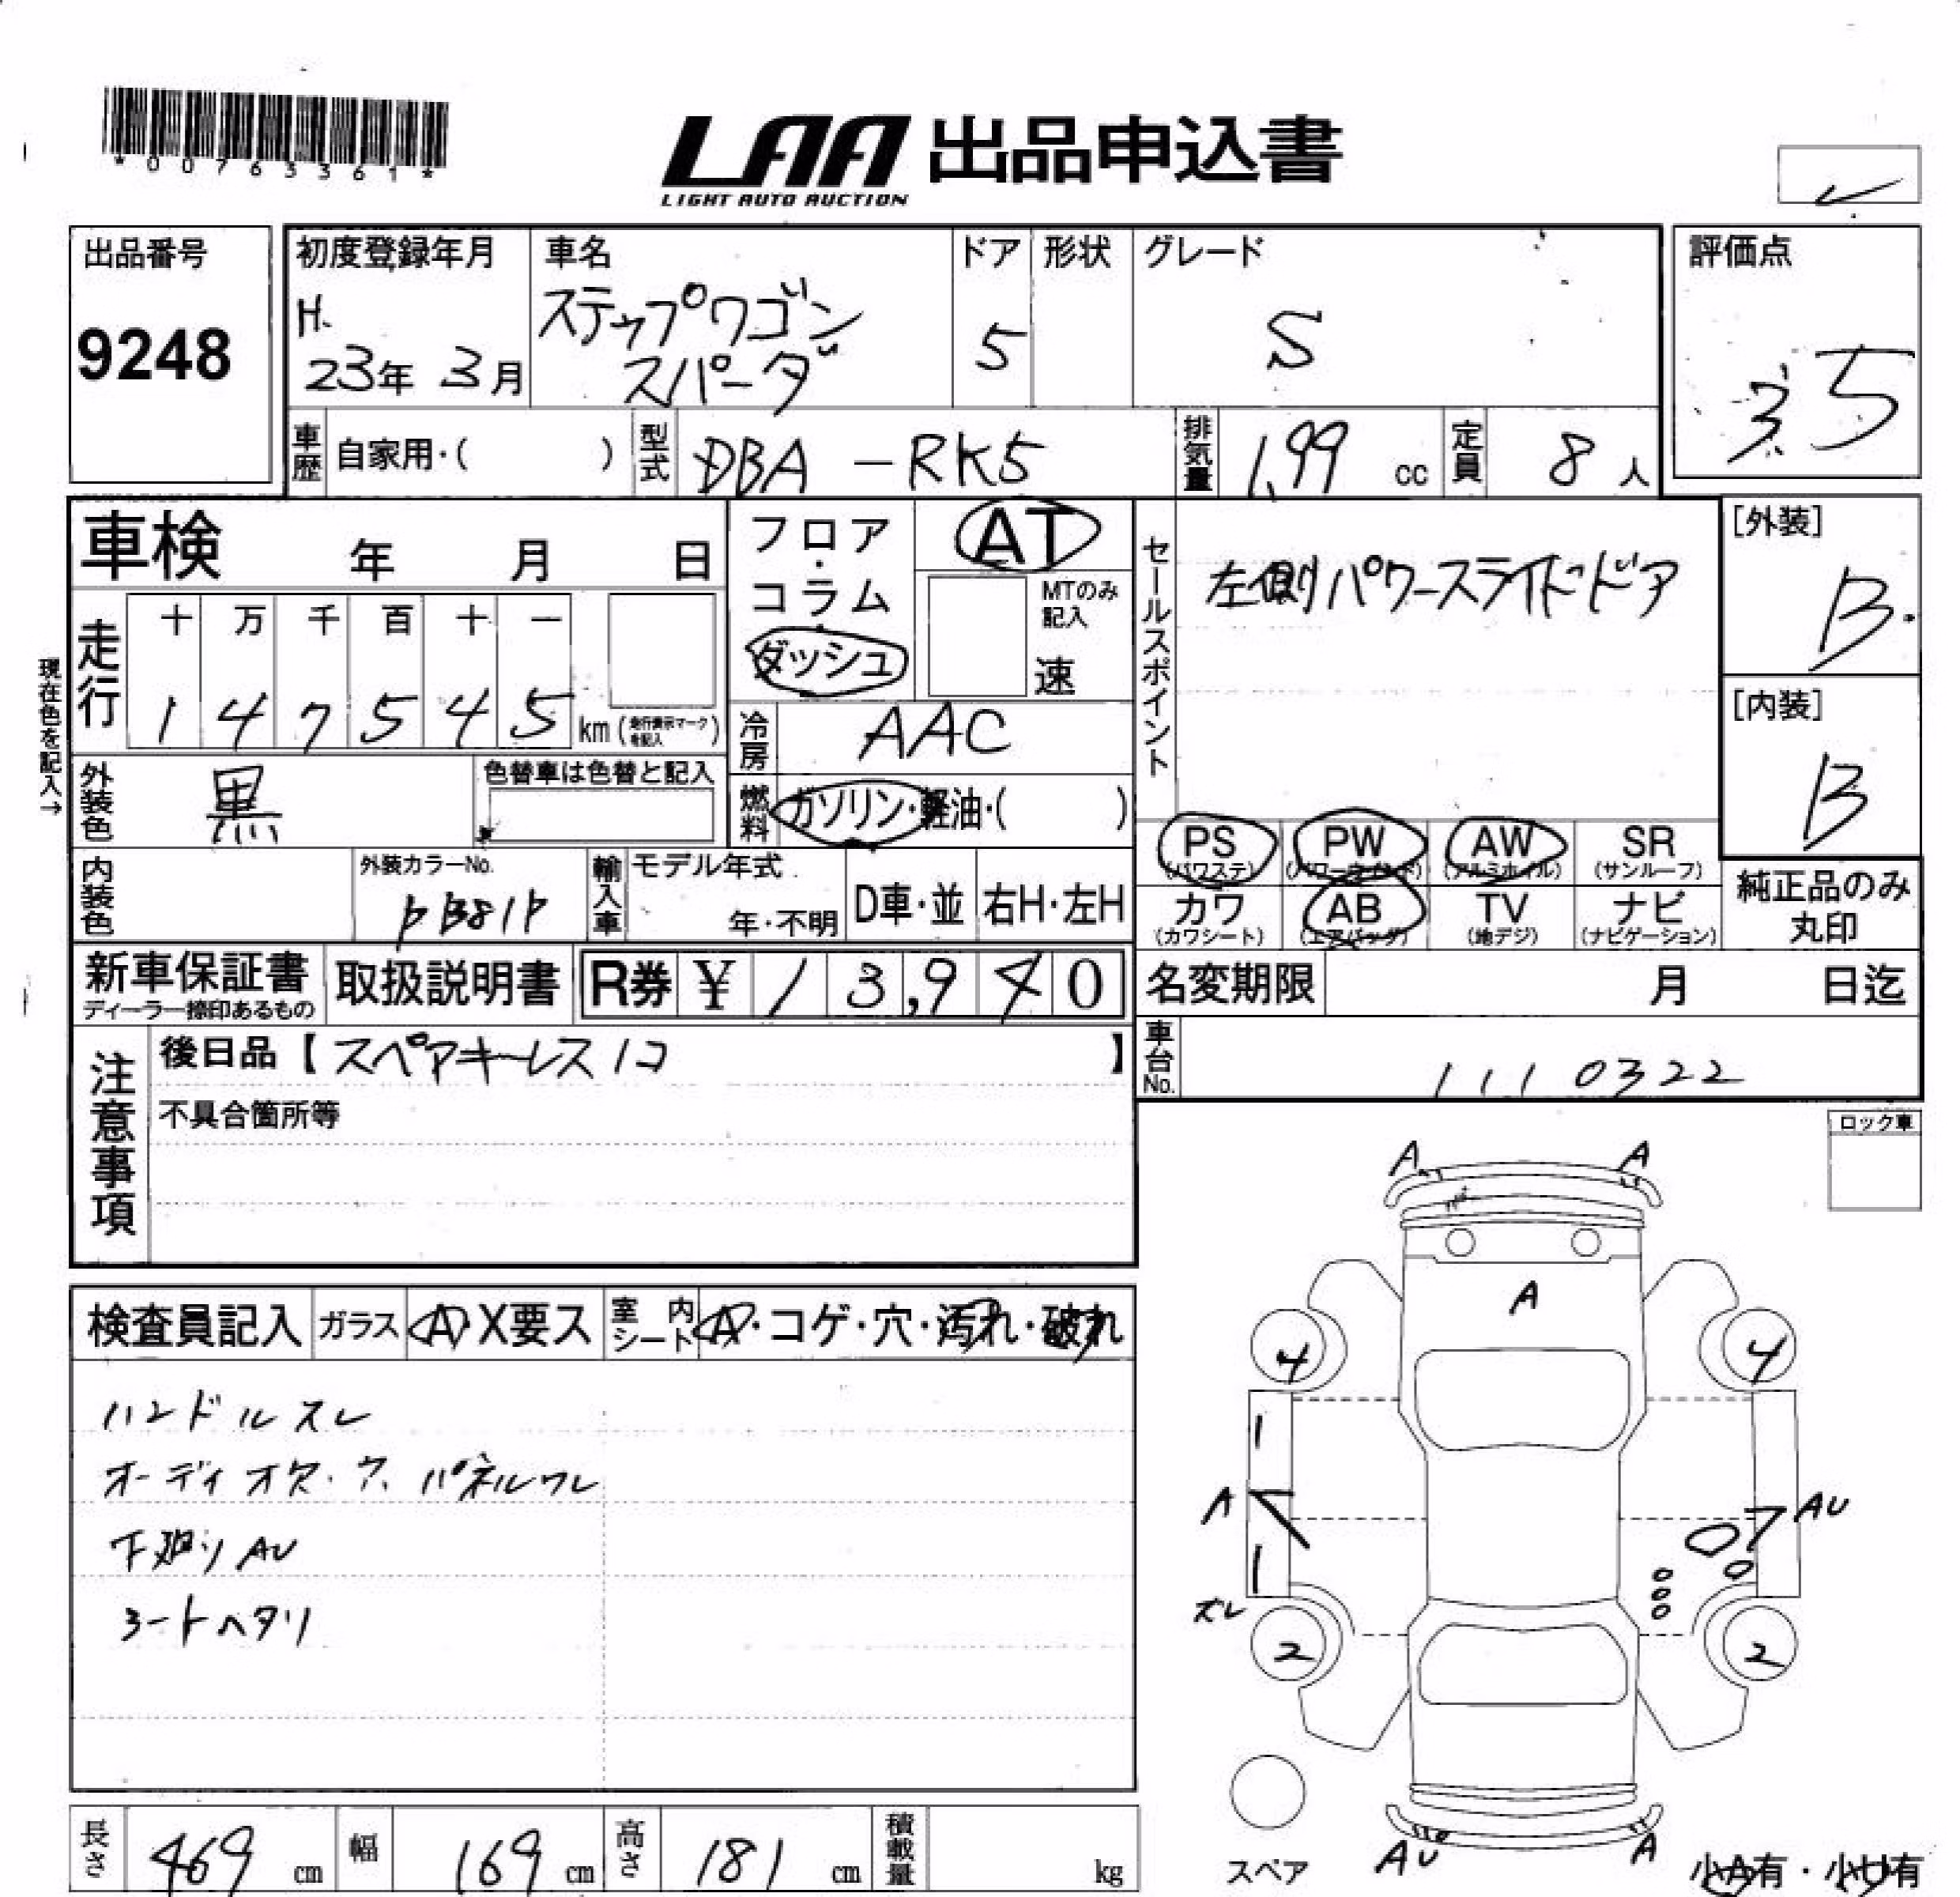 *00763361*
LAA 出品申込書
LIGHT AUTO AUCTION
出品番号
9248
初度登録年月
H.
23年 3月
車名
ステップワゴン
スパーダ
ドア
5
形状
グレード
S
評価点
3.5
車歴 自家用・( )
型式 DBA -RK5
排気量 1.99 cc
定員 8 人
車検 年 月 日
フロア・コラム・ダッシュ
AT
MTのみ記入
速
セールスポイント
左側パワースライドドア
[外装]
B
[内装]
B
現在色を記入→
走行
十 万 千 百 十 一
1 4 7 5 4 5 km (走行表示マークを記入)
冷房 AAC
外装色 黒
色替車は色替と記入
燃料 ガソリン・軽油・( )
PS (パワステ)
PW (パワーウインド)
AW (アルミホイル)
SR (サンルーフ)
カワ (カワシート)
AB (エアバッグ)
TV (地デジ)
ナビ (ナビゲーション)
純正品のみ
丸印
内装色
外装カラーNo.
輸入車
モデル年式
年・不明
D車・並
右H・左H
新車保証書
ディーラー捺印あるもの
取扱説明書
R券 ¥ 13,940
名変期限 月 日迄
車台No. 1110322
注意事項
後日品【スペアキーレス1コ 】
不具合箇所等
ロック車
検査員記入 ガラス A・X要ス 室内シート A・コゲ・穴・汚れ・破れ
ハンドルスレ
オーディオ欠・穴 パネルワレ
下廻り AU
シートヘタリ
A A
A
4 4
1
A AU
1
ズレ
2 2
スペア
AU A
小A有・小U有
長さ 469 cm
幅 169 cm
高さ 181 cm
積載量 kg